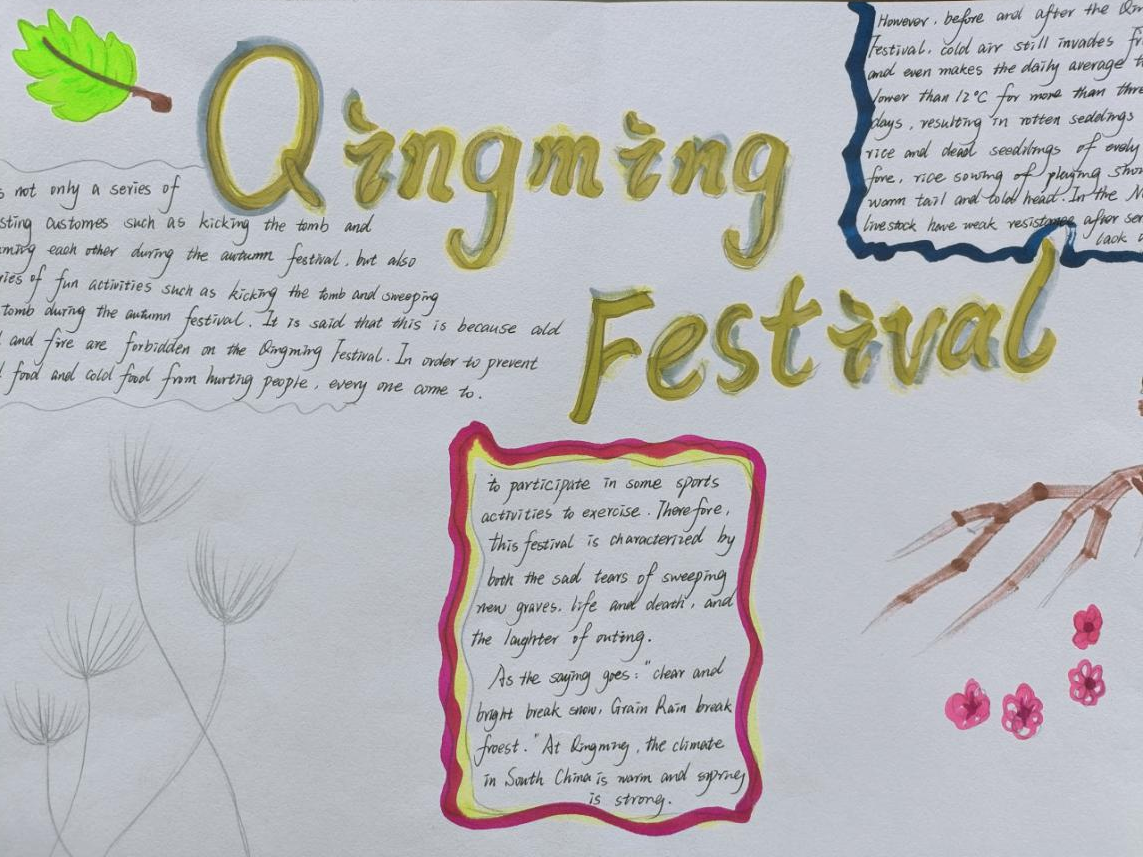 Qingming
Festival
s not only a series of
sting customes such as kicking the tomb and
ming each other during the autumn festival, but also
ries of fun activities such as kicking the tomb and sweeping
tomb during the autumn festival. It is said that this is because cold
and fire are forbidden on the Qingming Festival. In order to prevent
food and cold food from hurting people, every one come to.
to participate in some sports
activities to exercise. Therefore,
this festival is characterized by
both the sad tears of sweeping
new graves, life and death, and
the laughter of outing.
As the saying goes: "clear and
bright break snow, Grain Rain break
froest." At Qingming, the climate
in South China is warm and spring
is strong.
However, before and after the Qin
Festival, cold air still invades fr
and even makes the daily average t
lower than 12°C for more than thre
days, resulting in rotten seddings
rice and dead seedilngs of
fore, rice sowing of playing
warm tail and cold head. In the N
livestock have weak resistance after
lack